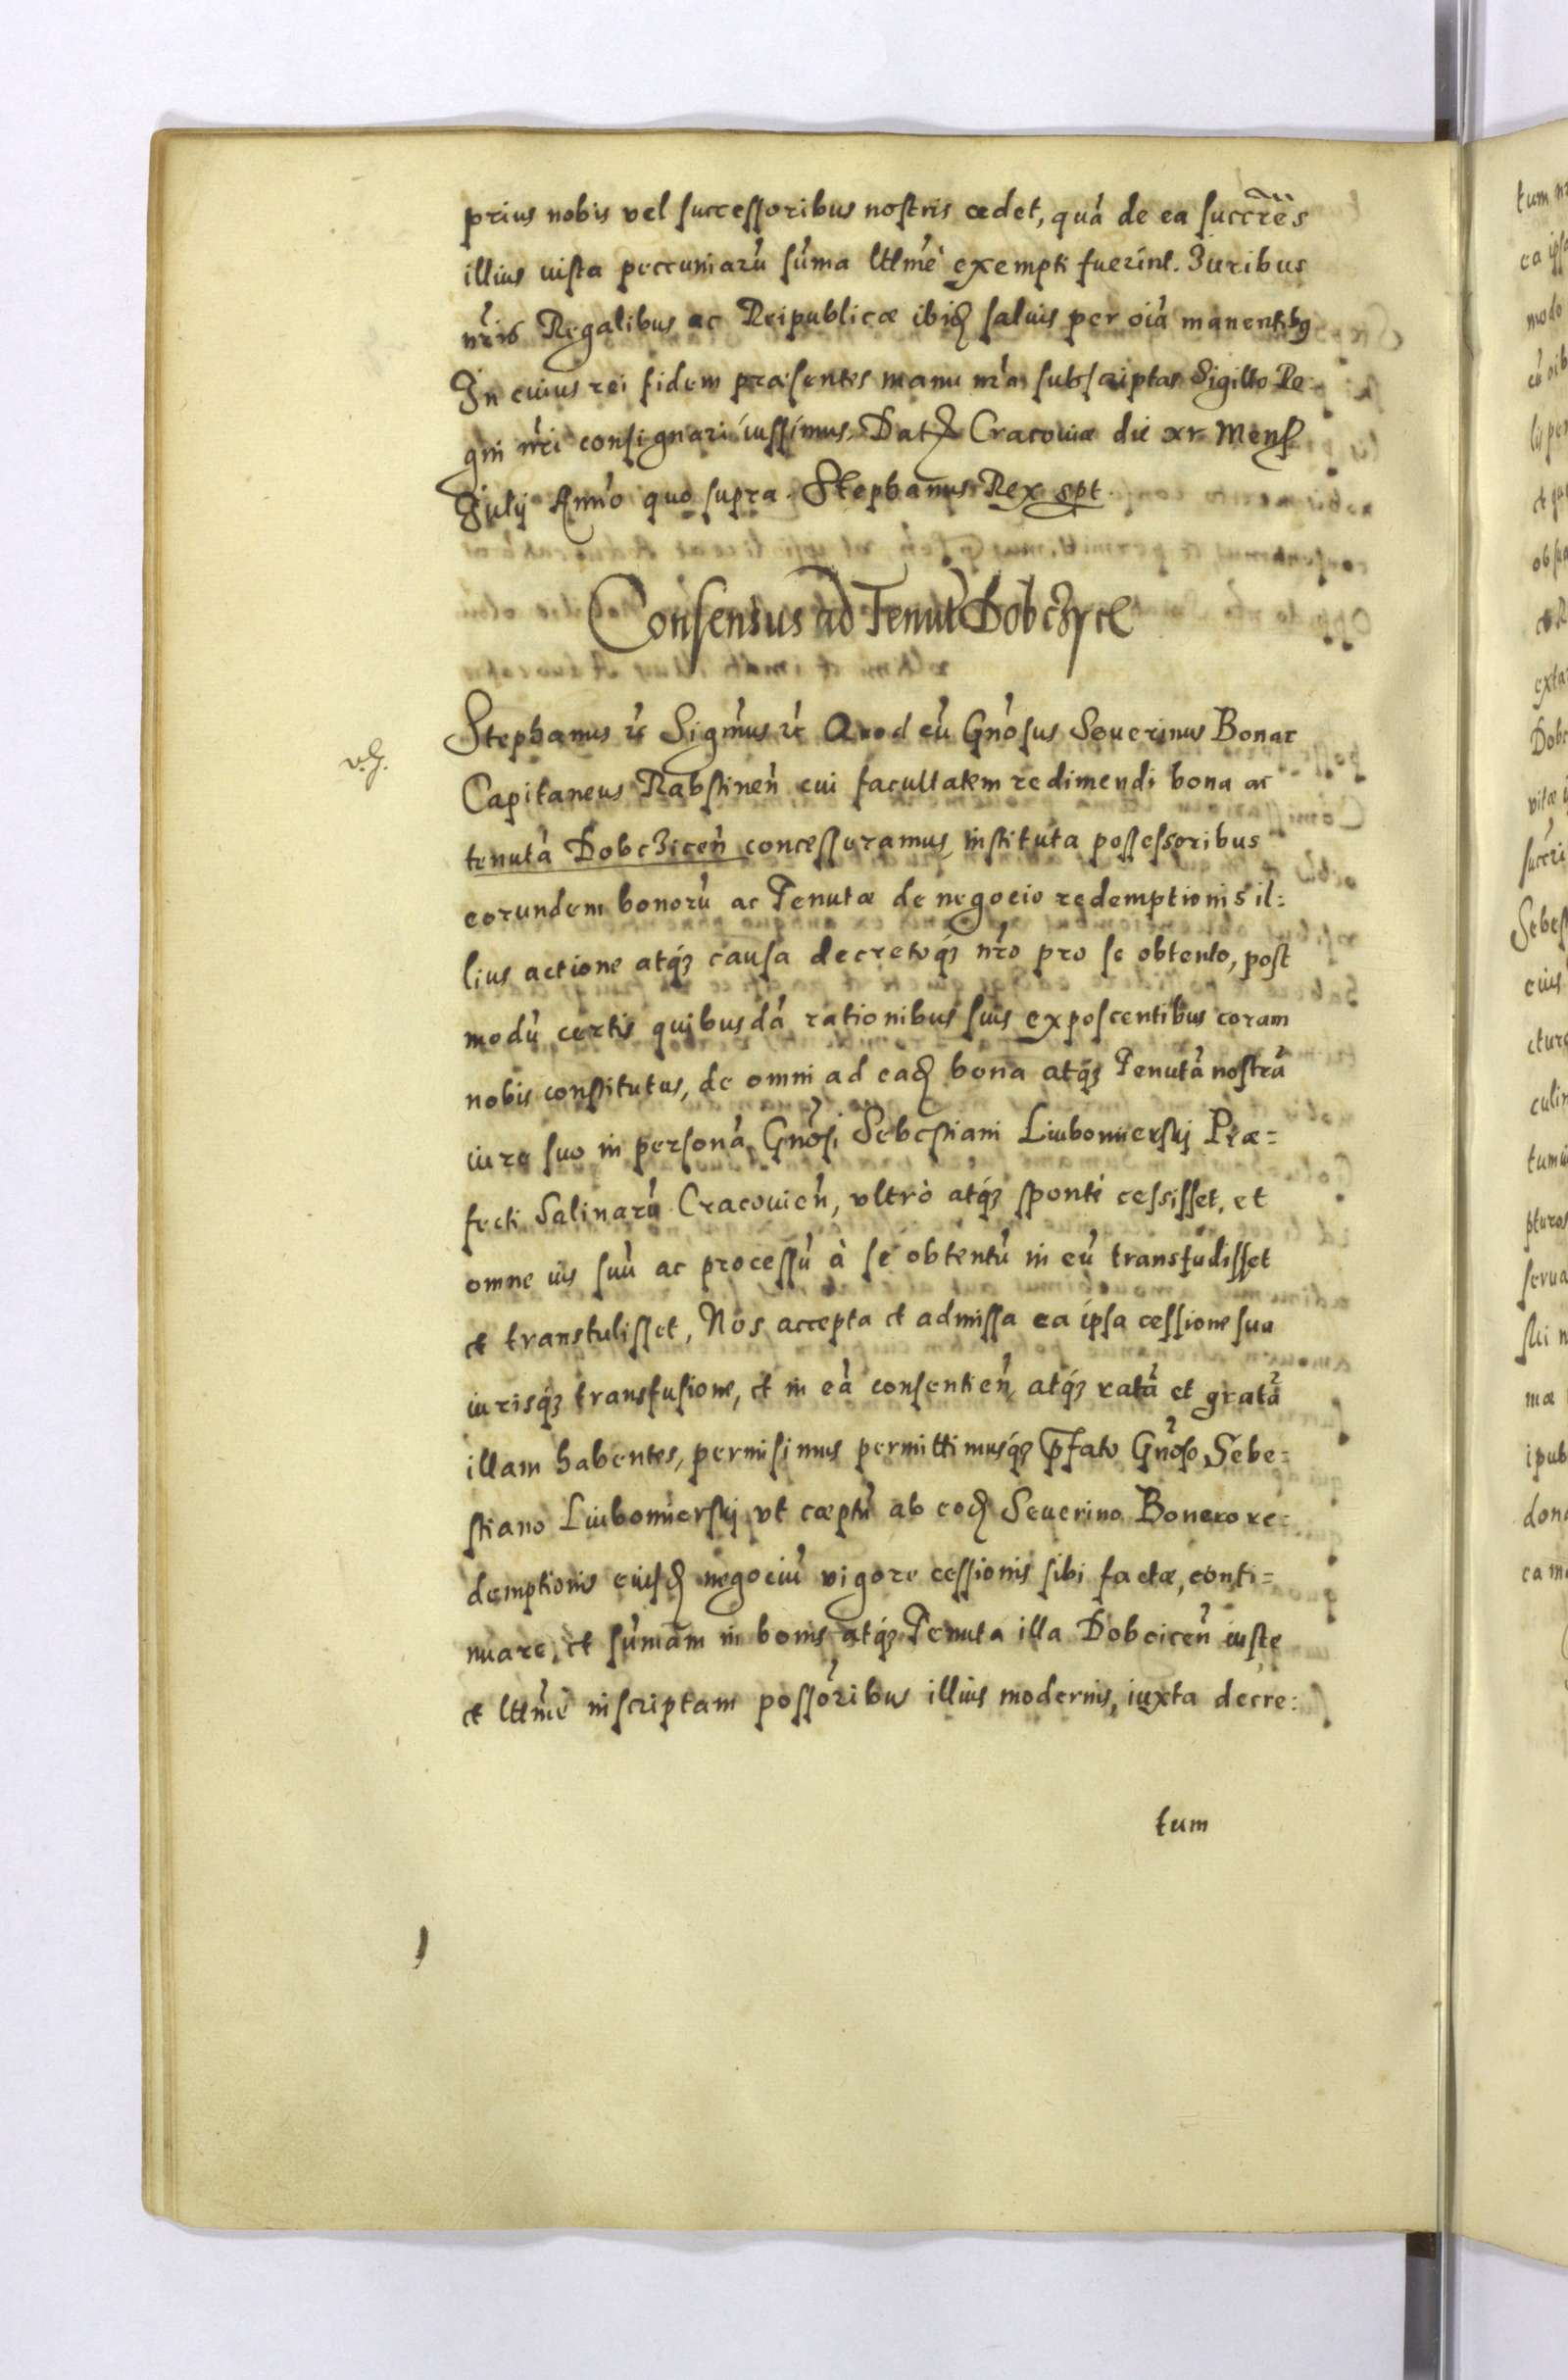 prius nobis vel successoribus nostris cedet, quá de ea succr̃ẽs
illius iusta peccuniarú súma lttm̃e exempti fuerint. Juribus
nr̃is Regalibus ac Reipublicæ ibiđ saluis per oĩa manentibꝰ
In cuius rei fidem præsentes manu nr̃a subscriptas Sigillo Re-
gni nr̃i consignari iussimus. Dat Cracouiæ die xv Mens
Julij Anno quo supra. Stephanus Rex spt
Consensus ad Tenut Dobczyce
Stephanus rc Sigm̃us rc Quod cú Gnõsus Seuerinus Bonar
Capitaneus Rabstineñ cui facultatem redimendi bona ac
tenutá Dobczიceñ concesseramus, instituta possessoribus
eorundem bonorú ac Tenutæ de negocio redemptionis il:
lius actione atqꝫ causa decretoqꝫ nr̃o pro se obtento, post
modú certis quibusdá rationibus suis exposcentibus coram
nobis constitutus, de omni ad eađ bona atqꝫ Tenutá nostrá
iure suo in personá Gnõsi Sebestiani Liubomierskj Præ=
fecti Salinarú Cracouieñ, vltrò atqꝫ sponte cessisset, et
omne ius suú ac processú à se obtentú in eú transfudisset
et transtulisset, Nos accepta et admissa ea ipsa cessione sua
iurisqꝫ transfusione, et in eá consentieñ, atqꝫ ratá et gratá
illam habentes, permisimus permittimusqꝫ p̃fato Gnõso Sebe=
stiano Liubomierskj vt cæptú ab eođ Seuerino Bonero re=
demptionis eiusđ negociú vigore cessionis sibi factæ, conti=
nuare, et súmam in bonis atqꝫ Tenuta illa Dobciceñ iuste
et lttm̃e inscriptam possõribus illius modernis, iuxta decre:
tum